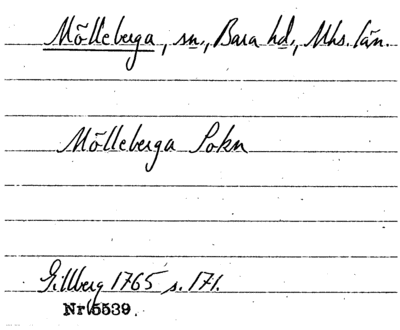 Mölleberga, sn., Bara hd., Mhs. län.
Mölleberga Sokn
Gillberg 1765 s. 171.
Nr 5539.